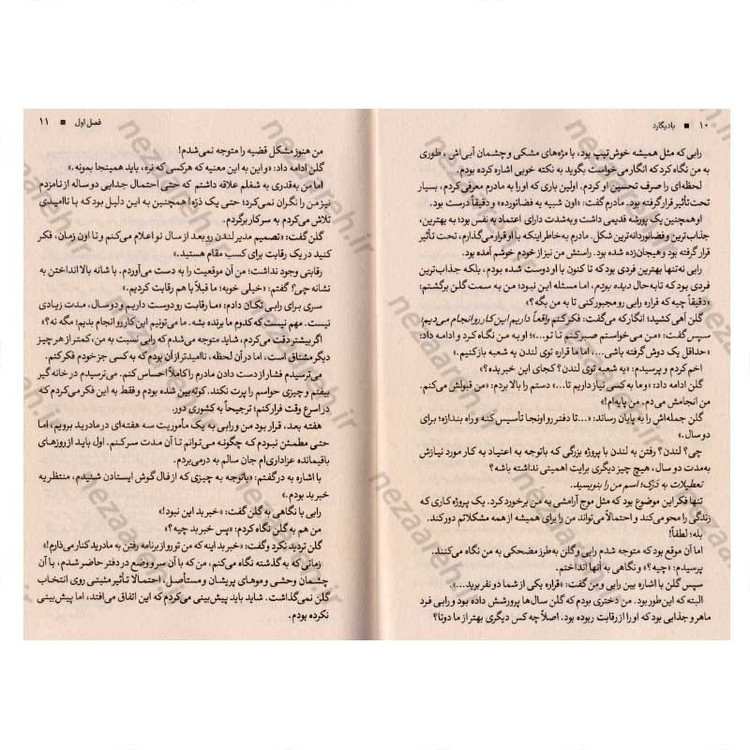 ۱۰ ■ بادیگارد
رابی که مثل همیشه خوش‌تیپ بود، با مژه‌های مشکی و چشمان آبی‌اش، طوری
به من نگاه کرد که انگار می‌خواست بگوید به نکته خوبی اشاره کرده بودم.
لحظه‌ای را صرف تحسین او کردم. اولین باری که او را به مادرم معرفی کردم، بسیار
تحت تأثیر قرار گرفته بود. مادرم گفت: «اون شبیه یه فضانورده» و دقیقاً درست بود.
او همچنین یک پورشه قدیمی داشت و به‌شدت دارای اعتماد به نفس بود؛ به بهترین،
جذاب‌ترین و فضانوردانه‌ترین شکل. مادرم به‌خاطر اینکه با او قرار می‌گذارم، تحت تأثیر
قرار گرفته بود و هیجان‌زده شده بود. راستش من نیز از خودم خوشم آمده بود.
رابی نه‌تنها بهترین فردی بود که تا کنون با او دوست شده بودم، بلکه جذاب‌ترین
فردی بود که تا‌به‌حال دیده بودم، اما مسئله این نبود؛ من به سمت گلن برگشتم؛
«دقیقاً چیه که قراره رابی رو مجبور کنی تا به من بگه؟»
گلن آهی کشید؛ انگار که می‌گفت: فکر کنم واقعاً داریم این کار رو انجام می‌دیم؛
سپس گفت: «من می‌خواستم صبر کنم تا تو...» او به من نگاه کرد و ادامه داد:
«حداقل یک دوش گرفته باشی...، اما ما قراره توی لندن یه شعبه باز کنیم.»
اخم کردم و پرسیدم: «یه شعبه توی لندن؟ کجای این خبر بده؟»
گلن ادامه داد: «و ما به کسی نیاز داریم تا...» دستم را بالا بردم: «من قبولش می‌کنم.
من انجامش می دم. من پایه‌ام!»
گلن جمله‌اش را به پایان رساند: «...تا دفتر رو اونجا تأسیس کنه و راه بندازه؛ برای
دو سال.»
چی؟ لندن؟ رفتن به لندن با پروژه بزرگی که باتوجه به اعتیاد به کار مورد نیازش
به‌مدت دو سال، هیچ چیز دیگری برایت اهمیتی نداشته باشه؟
تعطیلات به دَرَک؛ اسم من را بنویسید.
تنها فکر این موضوع بود که مثل موج آرامشی به من برخورد کرد. یک پروژه کاری که
زندگی را محو می‌کند و احتمالاً می‌تواند من را برای همیشه از همه مشکلاتم دور کند.
بله؛ لطفاً!
اما آن موقع بود که متوجه شدم رابی و گلن به‌طرز مضحکی به من نگاه می‌کنند.
پرسیدم: «چیه؟» و نگاهی به آنها انداختم.
سپس گلن با اشاره به بین رابی و من گفت: «قراره یکی از شما دو نفر بره...».
البته که این‌طور بود. من دختری بودم که گلن سال‌ها پرورشش داده بود و رابی فرد
ماهر و جذابی بود که او را از رقابت ربوده بود. اصلاً چه کس دیگری بهتر از ما دوتا؟
فصل اول ■ ۱۱
من هنوز مشکل قضیه را متوجه نمی‌شدم!
گلن ادامه داد: «و این به این معنیه که هرکسی که نره، باید همینجا بمونه.»
اما من به‌قدری به شغلم علاقه داشتم که حتی احتمال جدایی دو ساله از نامزدم
نیز من را نگران نمی‌کرد؛ حتی یک ذرّه! همچنین به این دلیل بود که با ناامیدی
تلاش می‌کردم به سر کار برگردم.
گلن گفت: «تصمیم مدیر لندن رو بعد از سال نو اعلام می‌کنم و تا اون زمان، فکر
کنید در یک رقابت برای کسب مقام هستید.»
رقابتی وجود نداشت؛ من آن موقعیت را به دست می‌آوردم. با شانه بالا انداختن به
نشانه چی؟ گفتم: «خیلی خوبه؛ ما قبلاً با هم رقابت کردیم.»
سری برای رابی تکان دادم: «ما رقابت رو دوست داریم و دو سال، مدت زیادی
نیست. مهم نیست که کدوم ما برنده بشه. ما می‌تونیم این کار رو انجام بدیم؛ مگه نه؟»
اگر بیشتر دقت می‌کردم، شاید متوجه می‌شدم که رابی نسبت به من، کمتر از هر چیز
دیگر مشتاق است، اما در آن لحظه، ناامیدتر از آن بودم که به کسی جز خودم فکر کنم.
می‌ترسیدم فشار از دست دادن مادرم را کاملاً احساس کنم. می‌ترسیدم در خانه گیر
بیفتم و چیزی حواسم را پرت نکند. کوته‌بین شده بودم و فقط به این فکر می‌کردم که
در اسرع وقت فرار کنم؛ ترجیحاً به کشوری دور.
هفته بعد، قرار بود من و رابی به یک مأموریت سه هفته‌ای در مادرید برویم، اما
حتی مطمئن نبودم که چگونه می‌توانم تا آن مدت سر کنم. اول باید از روزهای
باقیمانده عزاداری‌ام جان سالم به در می‌بردم.
با اشاره به در گفتم: «باتوجه به چیزی که از فال گوش ایستادن شنیدم، منتظر یه
خبر بد بودم.»
رابی با نگاهی به گلن گفت: «خبر بد این نبود!»
من هم به گلن نگاه کردم: «پس خبر بد چیه؟»
گلن تردید نکرد و گفت: «خبر بد اینه که من تو را از برنامه رفتن به مادرید کنار می‌ذارم!»
زمانی که به گذشته نگاه می‌کنم، من که با آن سر و وضع در دفتر حاضر شدم، با آن
چشمان وحشی و موهای پریشان و مستأصل، احتمالاً تأثیر مثبتی روی انتخاب
گلن نمی‌گذاشت. شاید باید پیش‌بینی می‌کردم که این اتفاق می‌افتد، اما پیش‌بینی
نکرده بودم.
nezaareh.ir